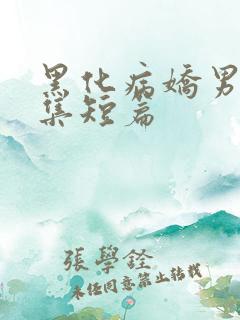 黑化病嬌男
集短篇
張學銓
未经同意禁止转载